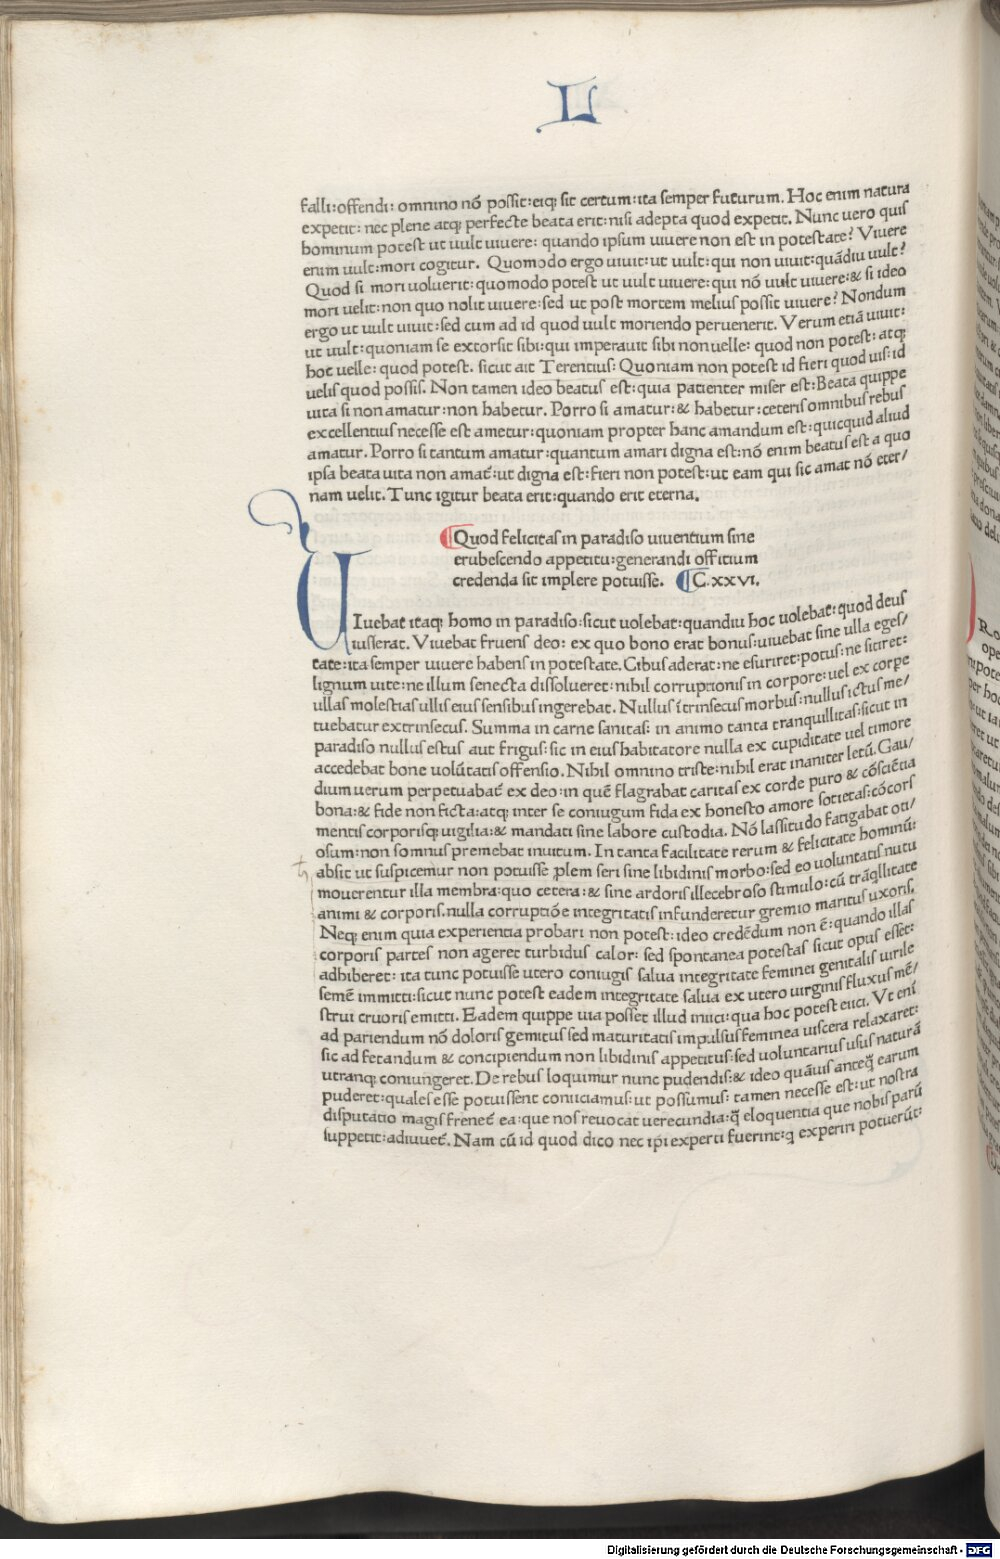 L
falli:offendi: omnino nō possit:eiq; sit certum:ita semper futurum. Hoc enim natura
expetit: nec plene atq; perfecte beata erit:nisi adepta quod expetit. Nunc uero quis
hominum potest ut uult uiuere: quando ipsum uiuere non est in potestate? Viuere
enim uult:mori cogitur. Quomodo ergo uiuit:ut uult:qui non uiuit:quādiu uult?
Quod si mori uoluerit:quomodo potest ut uult uiuere:qui nō uult uiuere:& si ideo
mori uelit:non quo nolit uiuere:sed ut post mortem melius possit uiuere? Nondum
ergo ut uult uiuit:sed cum ad id quod uult moriendo peruenerit. Verum etiā uiuit:
ut uult:quoniam se extorsit sibi:qui imperauit sibi non uelle: quod non potest: atq;
hoc uelle: quod potest. sicut ait Terentius: Quoniam non potest id fieri quod uis:id
uelis quod possis. Non tamen ideo beatus est:quia patienter miser est:Beata quippe
uita si non amatur:non habetur. Porro si amatur:& habetur:ceteris omnibus rebus
excellentius necesse est ametur:quoniam propter hanc amandum est:quicquid aliud
amatur. Porro si tantum amatur:quantum amari digna est:nō enim beatus est a quo
ipsa beata uita non amat̃:ut digna est:fieri non potest:ut eam qui sic amat nō eter/
nam uelit. Tunc igitur beata erit:quando erit eterna.
Quod felicitas in paradiso uiuentium sine
erubescendo appetitu:generandi offitium
credenda sit implere potuisse. C.xxvi.
UIuebat itaq; homo in paradiso:sicut uolebat:quandiu hoc uolebat:quod deus
iusserat. Viuebat fruens deo: ex quo bono erat bonus:uiuebat sine ulla eges/
tate:ita semper uiuere habens in potestate. Cibus aderat:ne esuriret:potus:ne sitiret:
lignum uite:ne illum senecta dissolueret:nihil corruptionis in corpore:uel ex corpe
ullas molestias ullis eius sensibus ingerebat. Nullus ītrinsecus morbus:nullus ictus me/
tuebatur extrinsecus. Summa in carne sanitas: in animo tanta tranquillitas:sicut in
paradiso nullus estus aut frigus:sic in eius habitatore nulla ex cupiditate uel timore
accedebat bone uolūtatis offensio. Nihil omnino triste:nihil erat inaniter letū. Gau/
dium uerum perpetuabat̃ ex deo:in quē flagrabat caritas ex corde puro & cōsciētia
bona:& fide non ficta:atq; inter se coniugum fida ex honesto amore sotietas:cōcors
mentis corporisq; uigilia:& mandati sine labore custodia. Nō lassitudo fatigabat oti/
osum:non somnus premebat inuitum. In tanta facilitate rerum & felicitate hominū:
absit ut suspicemur non potuisse ꝓlem seri sine libidinis morbo:sed eo uoluntatis nutu
mouerentur illa membra:quo cetera:& sine ardoris illecebroso stimulo:cū trāq̇llitate
animi & corporis.nulla corruptiōe integritatis infunderetur gremio maritus uxoris.
Neq; enim quia experientia probari non potest:ideo credēdum non ē:quando illas
corporis partes non ageret turbidus calor: sed spontanea potestas sicut opus esset:
adhiberet: ita tunc potuisse utero coniugis salua integritate feminei genitalis uirile
semē immitti:sicut nunc potest eadem integritate salua ex utero uirginis fluxus mē/
strui cruoris emitti. Eadem quippe uia posset illud iniici:qua hoc potest eiici. Vt enī
ad pariendum nō doloris gemitus sed maturitatis impulsus feminea uiscera relaxaret:
sic ad fetandum & concipiendum non libidinis appetitus:sed uoluntarius usus naturā
utranq; coniungeret. De rebus loquimur nunc pudendis:& ideo quāuis anteq̃ earum
puderet:quales esse potuissent coniiciamus:ut possumus: tamen necesse est:ut nostra
disputatio magis frenet̃ ea:que nos reuocat uerecundia:q̃ eloquentia que nobis parū
suppetit:adiuuet̃. Nam cū id quod dico nec ip̄i experti fuerint:q̇ experiri potuerūt:
Digitalisierung gefördert durch die Deutsche Forschungsgemeinschaft - DFG